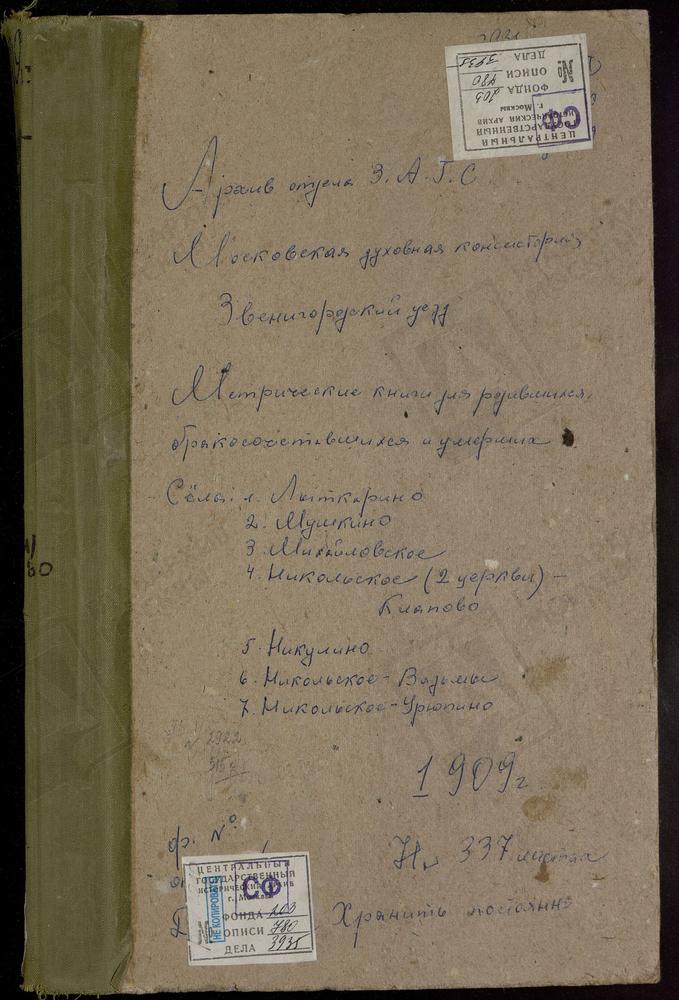 № ДЕЛА 3935
ОПИСИ 780
ФОНДА 203
г. Москвы
ИСТОРИЧЕСКИЙ АРХИВ
ГОСУДАРСТВЕННЫЙ
ЦЕНТРАЛЬНЫЙ
СФ
Архив отдела З.А.Г.С
Московская духовная консистория
Звенигородский уезд
Метрические книги для родившихся,
бракосочетавшихся и умерших
Сёла: 1. Лыткарино
2. Мушкино
3. Михайловское
4. Никольское (2 церкви) –
5. Никулино
6. Никольское - Вязьмы
7. Никольское - Урюпино
2922
1909 г
ф. №
На 337 листах
Хранить постоянно
ЦЕНТРАЛЬНЫЙ
ГОСУДАРСТВЕННЫЙ
ИСТОРИЧЕСКИЙ АРХИВ
г. Москвы
СФ
НЕ КОПИРОВАТЬ
ФОНДА 203
ОПИСИ 780
ДЕЛА 3935